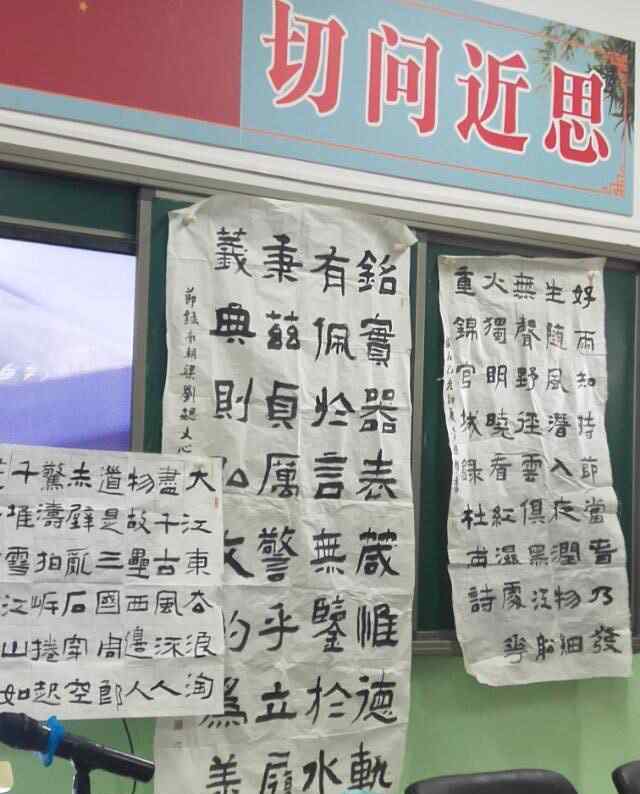 切问近思
好雨知時節當春乃發
生隨風潛入夜潤物細
無聲野徑雲俱黑江船
火獨明曉看紅濕處花
重錦官城錄杜甫詩
銘實器表箴惟德軌
有佩於言無鑒於水
秉茲貞厲警乎立履
義典則弘文約為美
節錄南朝梁劉勰文心
大江東去浪淘
盡千古風流人
物故壘西邊人
道是三國周郎
赤壁亂石穿空
驚濤拍岸捲起
千堆雪江山如